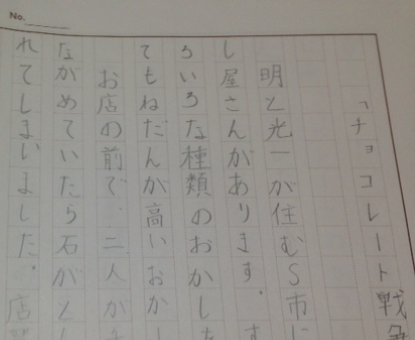 No.
「チョコレート戦争
明と光一が住むS市に
し屋さんがあります。す
ろいろな種類のおかしを
てもねだんが高いおかし
お店の前で、二人が
ながめていたら石がとし
れてしまいました。店